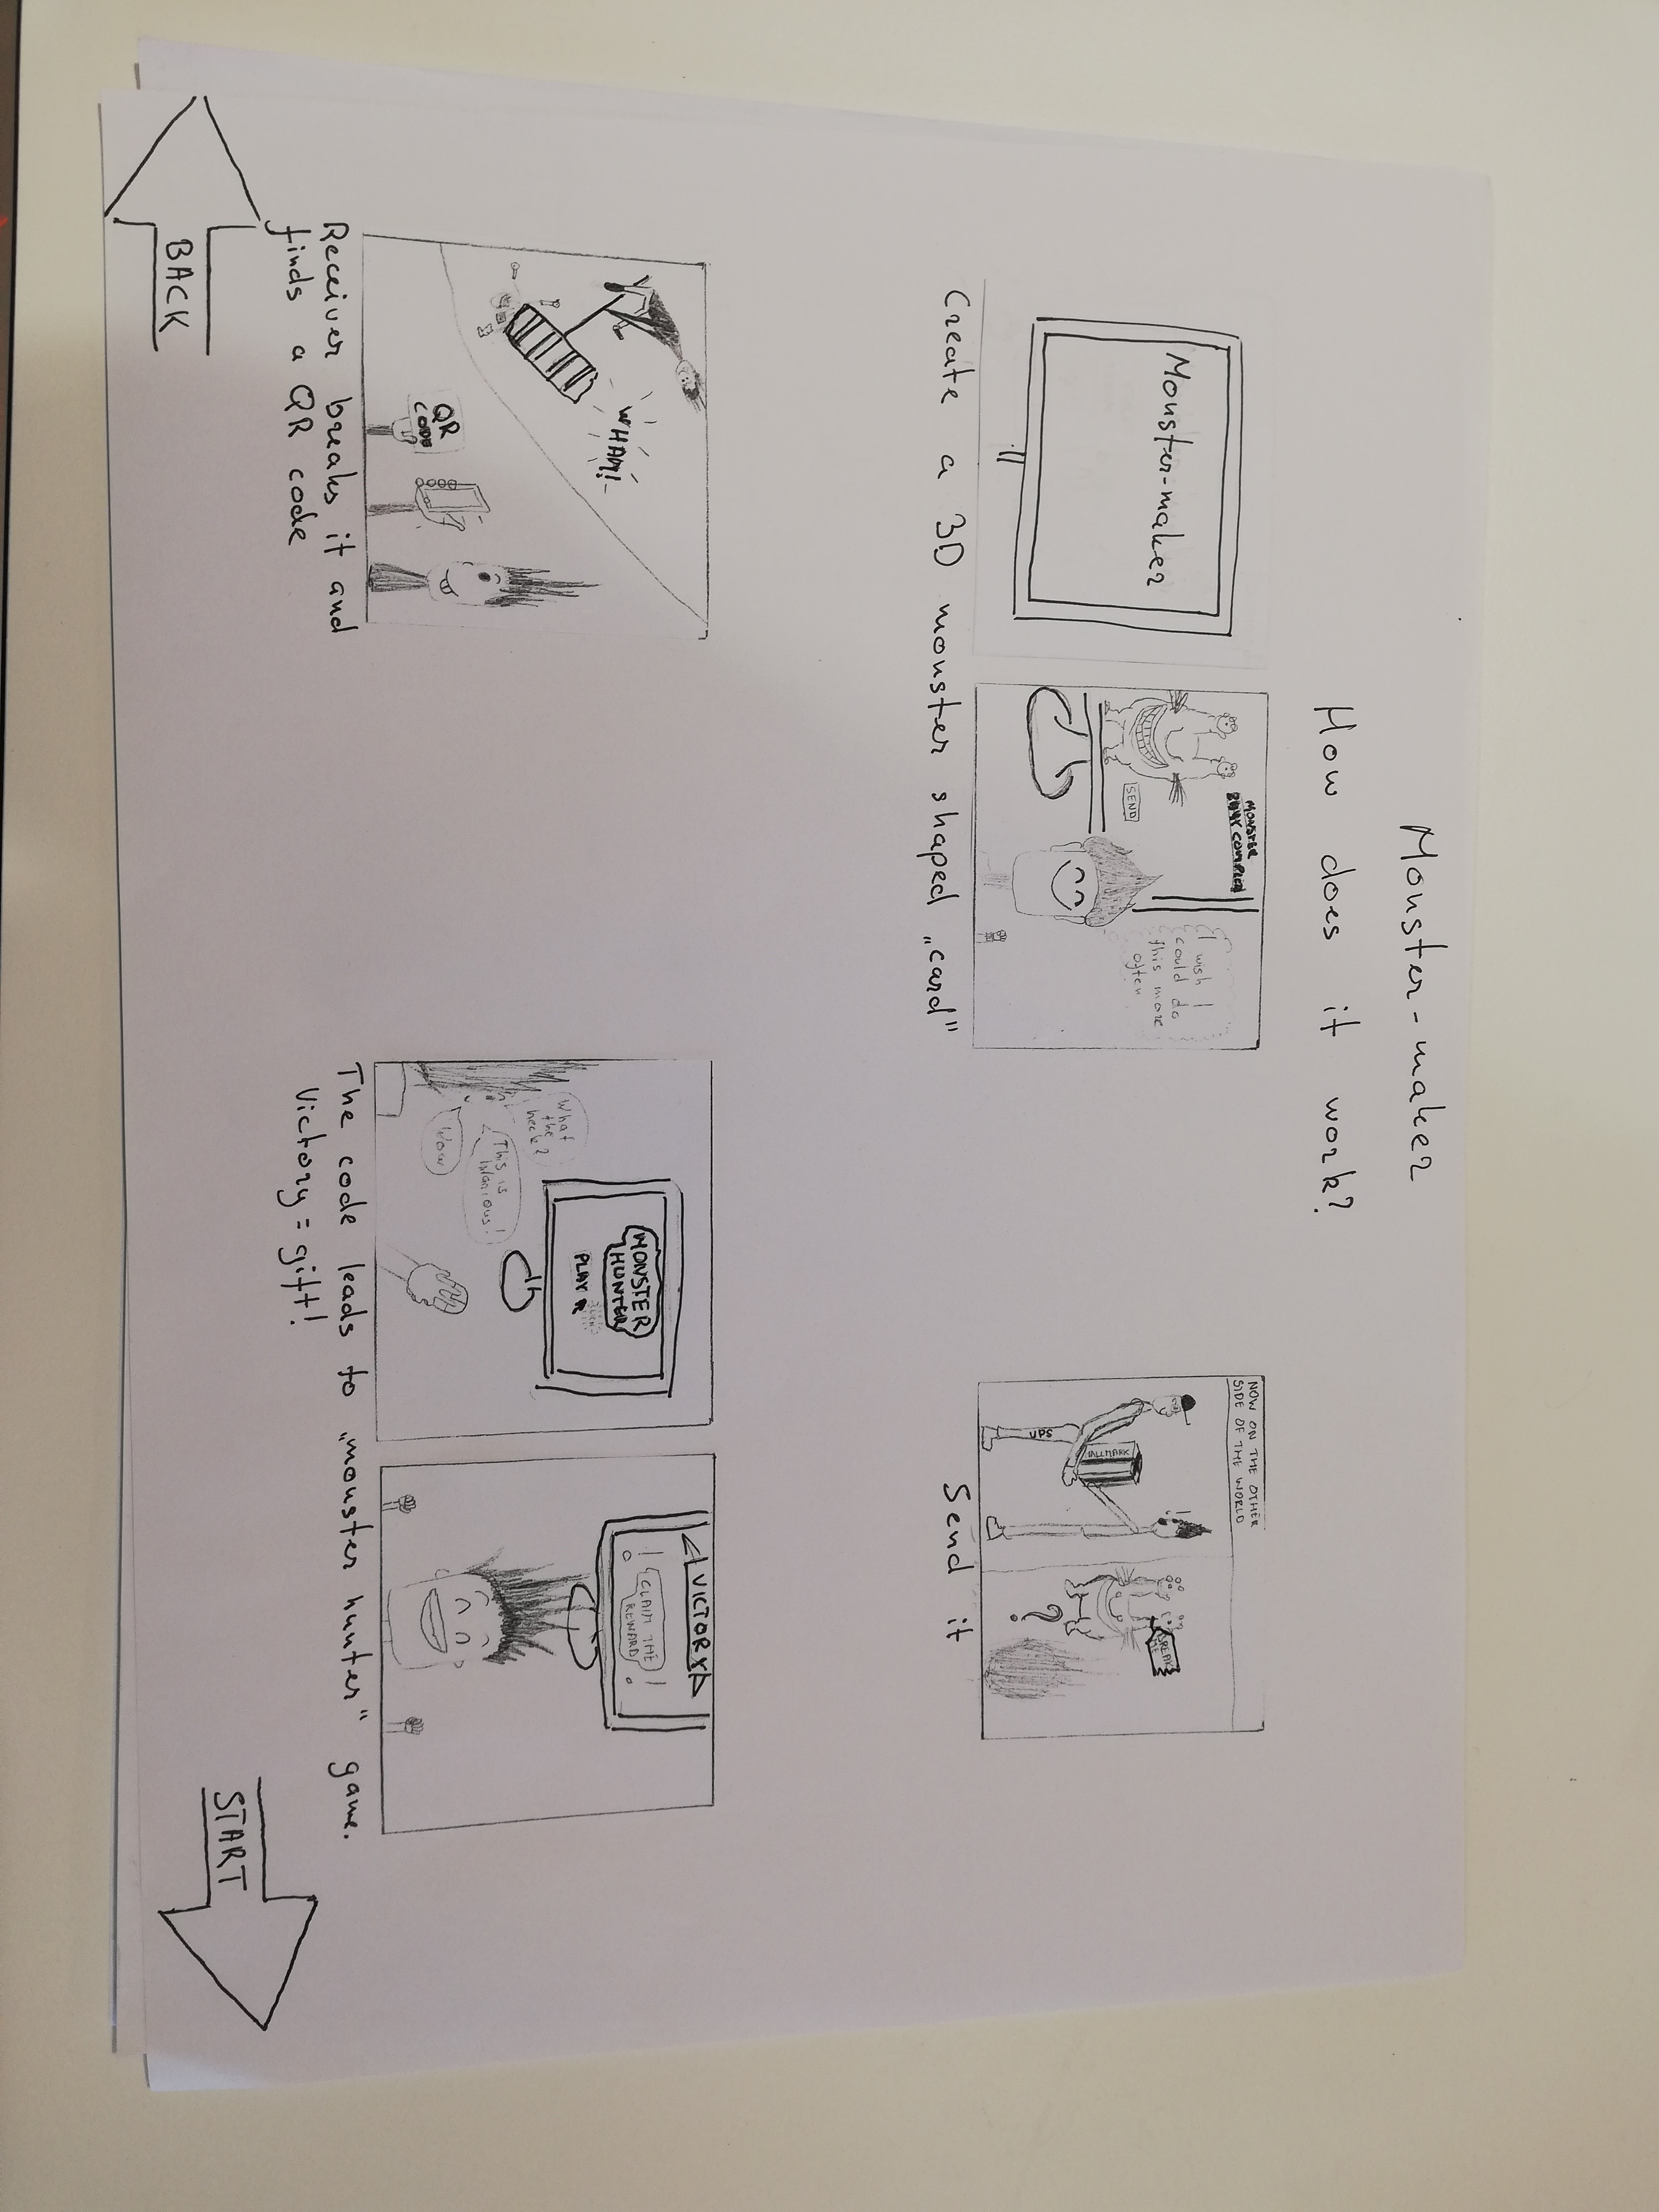 Monster-maker
How does it work?
Monster-maker
MONSTER
COMPLETED
SEND
I wish I
could do
this more
often
Create a 3D monster shaped „card"
NOW ON THE OTHER
SIDE OF THE WORLD
HALLMARK
UPS
BREAK
ME
?
Send it
WHAM!
QR
CODE
Receiver breaks it and
finds a QR code
MONSTER
HUNTER
PLAY
What
the
heck?
This is
hilarious!
Wow
VICTORY
! CLAIM THE !
REWARD
The code leads to „monster hunter" game.
Victory = gift!
BACK
START